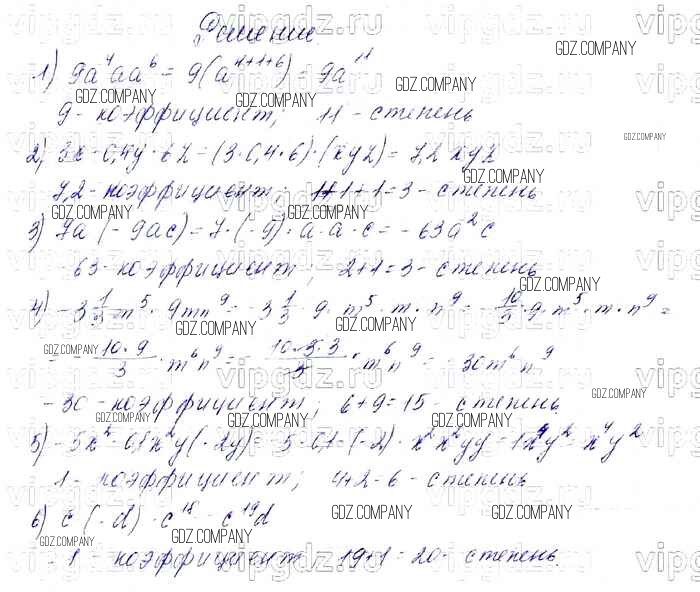 Решение
1) 9a⁴aa⁶ = 9(a⁴⁺¹⁺⁶) = 9a¹¹
9 - коэффициент; 11 - степень
2) 3x · 0,4y · 6z = (3·0,4·6)·(xyz) = 7,2 xyz
7,2 - коэффициент; 1+1+1=3 - степень
3) 7a (-9ac) = 7·(-9)·a·a·c = -63a²c
-63 - коэффициент; 2+1=3 - степень
4) -3 1/3 m⁵ · 9mn⁹ = -3 1/3 · 9 · m⁵ · m · n⁹ = - 10/3 · 9 · m⁵ · m · n⁹ =
= - 10·9/3 · m⁶n⁹ = - 10·3·3/3 · m⁶n⁹ = -30m⁶n⁹
-30 - коэффициент; 6+9=15 - степень
5) -5x² · 0,1x²y(-2y) = -5·0,1·(-2)·x²x²yy = 1x⁴y² = x⁴y²
1 - коэффициент; 4+2=6 - степень
6) c (-d) · c¹⁸ = -c¹⁹d
-1 - коэффициент, 19+1=20 - степень.
GDZ.COMPANY
vipgdz.ru